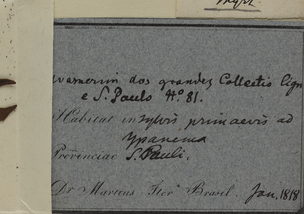 dos grandes Collectio Lign
e S. Paulo No. 81.
Habitat in sylvis primaevis ad
Ypanema
Provinciae S. Pauli.
Dr Martius Iter Brasil. Jan. 1818